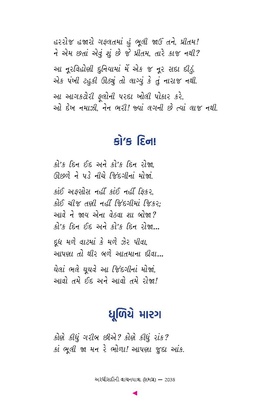 હરરોજ હજારો ગફલતમાં હું ભૂલી જાઉં તને, પ્રીતમ!
ને એમ છતાં એવું શું છે જે પ્રીતમ, તારે કાજ નથી?
આ નૂરવિહોણી દુનિયામાં મેં એક જ નૂર સદા દીઠું,
એક પંખી ટહુકી ઊઠ્યું તો લાગ્યું કે તું નારાજ નથી.
આ આગકટોરી ફૂલોની પરદા ખોલી પોકાર કરે,
ઓ દેખ નમાઝી, નેન ભરી! જ્યાં લગની છે ત્યાં લાજ નથી.
કો'ક દિન!
કો'ક દિન ઈદ અને કો'ક દિન રોજા,
ઊછળે ને પડે નીચે જિંદગીનાં મોજાં.
કાંઈ અફસોસ નહીં કાંઈ નહીં ફિકર,
કોઈ ચીજ તણી નહીં જિંદગીમાં જિકર;
આવે ને જાય એના વેઠવા શા બોજા?
કો'ક દિન ઈદ અને કો'ક દિન રોજા...
દૂધ મળે વાટમાં કે મળે ઝેર પીવા,
આપણા તો થીર બળે આતમાના દીવા...
ઘેલાં ભલે ઘૂઘવે આ જિંદગીનાં મોજાં,
આવો તમે ઈદ અને આવો તમે રોજા!
ધૂળિયે મારગ
કોણે કીધું ગરીબ છીએ? કોણે કીધું રાંક?
કાં ભૂલી જા મન રે ભોળા! આપણા જુદા આંક.